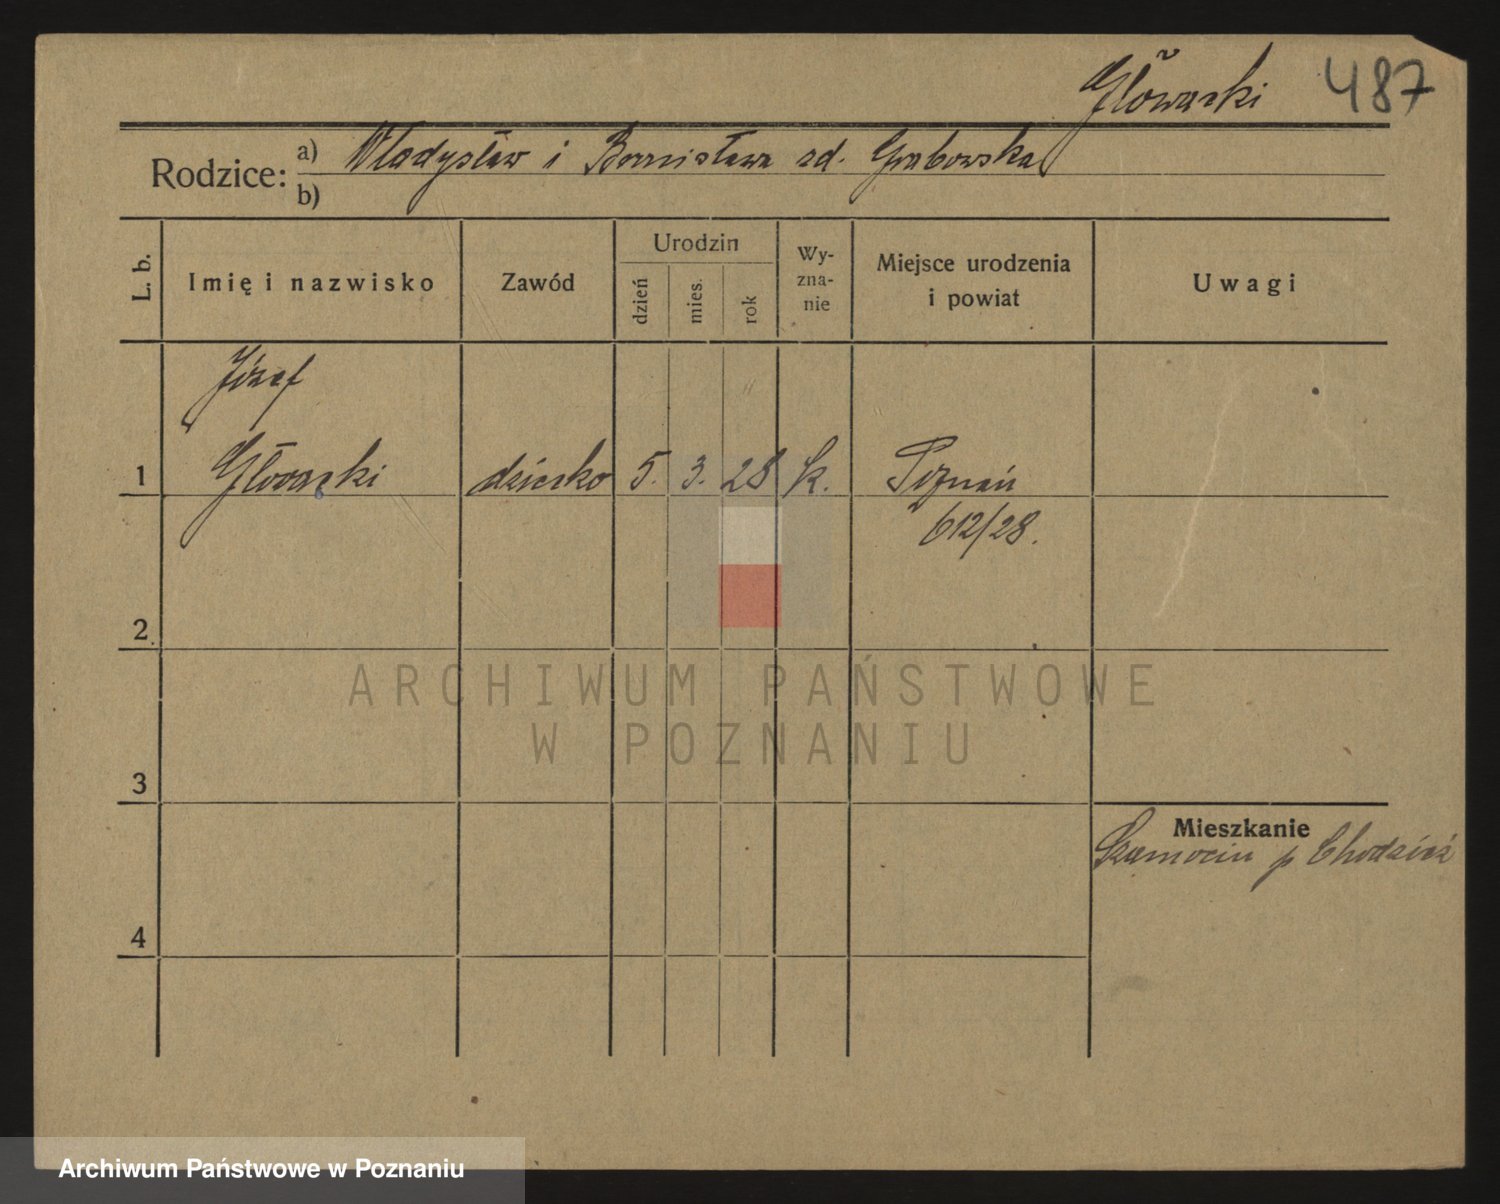 Głowacki 487
Rodzice: a) Władysław i Bronisława zd. Grabowska
b)
L. b. Imię i nazwisko Zawód Urodzin dzień mies. rok Wy-zna-nie Miejsce urodzenia i powiat Uwagi
Józef
1 Głowacki dziecko 5. 3. 28 k. Poznań
612/28.
2
ARCHIWUM PAŃSTWOWE
W POZNANIU
3
Mieszkanie
Szamocin p Chodzież
4
Archiwum Państwowe w Poznaniu